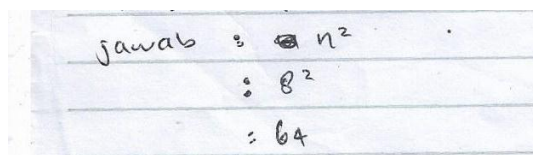 jawab : n²
: 8²
: 64